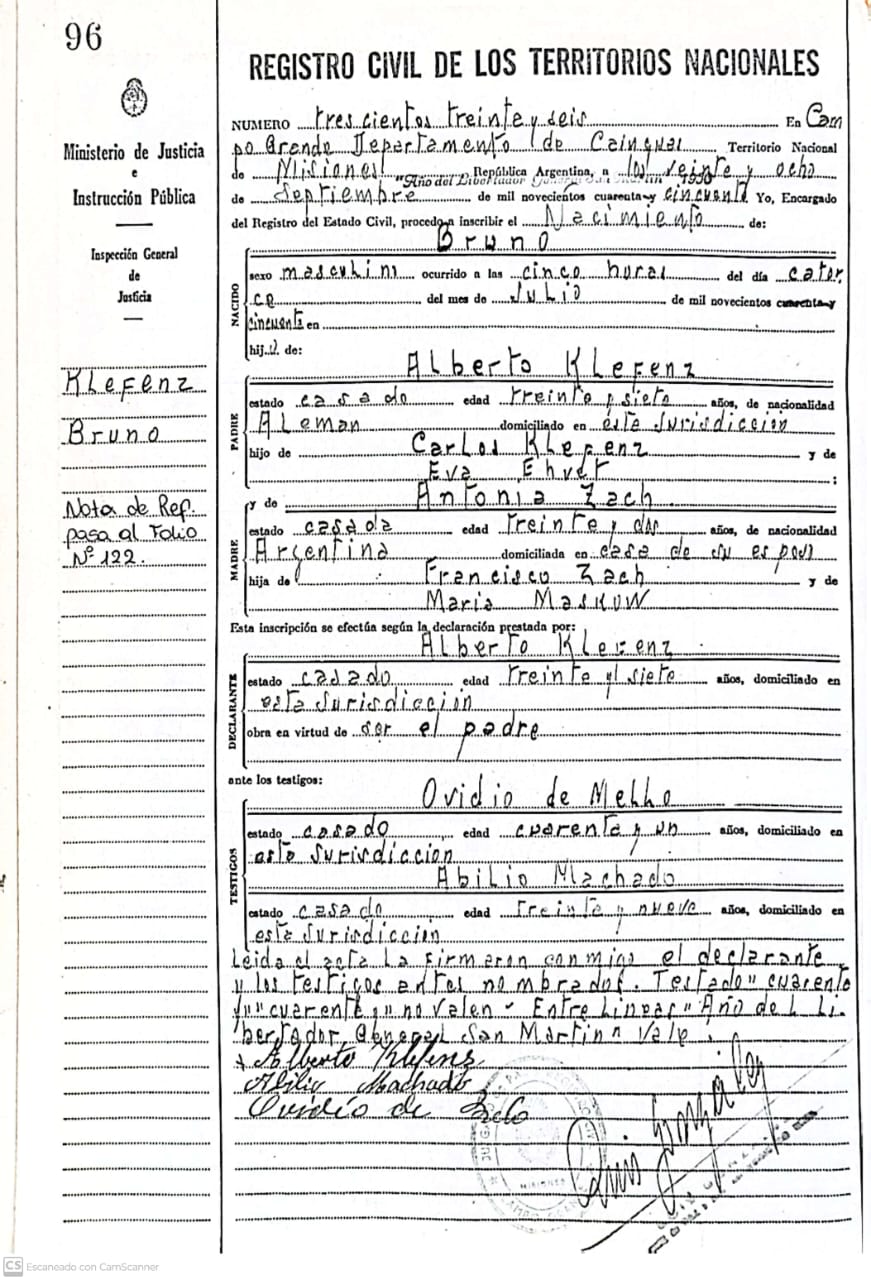 96
Ministerio de Justicia
e
Instrucción Pública
Inspección General
de
Justicia
Klefenz
Bruno
Nota de Ref.
pasa al Folio
Nº 122.
REGISTRO CIVIL DE LOS TERRITORIOS NACIONALES
NUMERO tres cientos treinta y seis En Cam
po Grande Departamento de Cainguas Territorio Nacional
de Misiones República Argentina, a los veinte y ocho
"Año del Libertador General San Martín" 1950
de Septiembre de mil novecientos cuarenta y cincuenta Yo, Encargado
del Registro del Estado Civil, procedo a inscribir el Nacimiento de:
Bruno
NACIDO
sexo masculino ocurrido a las cinco horas del día cator
ce del mes de Julio de mil novecientos cuarenta y
cincuenta en
hijo de:
Alberto Klefenz
PADRE
estado casado edad treinta y siete años, de nacionalidad
Aleman domiciliado en esta Jurisdicción
hijo de Carlos Klefenz y de
Eva ;
y de Antonia Zach
MADRE
estado casada edad treinta y dos años, de nacionalidad
Argentina domiciliada en casa de su esposo
hija de Francisco Zach y de
Maria Maskow
Esta inscripción se efectúa según la declaración prestada por:
Alberto Klefenz
DECLARANTE
estado casado edad treinta y siete años, domiciliado en
esta Jurisdicción
obra en virtud de ser el padre
ante los testigos:
Ovidio de Mello
TESTIGOS
estado casado edad cuarenta y un años, domiciliado en
esta Jurisdicción
Abilio Machado
estado casado edad treinta y nueve años, domiciliado en
esta Jurisdicción
Leida el acta la firmaron conmigo el declarante
y los testigos antes nombrados. Testado "cuarenta
y" "cuarenta y" no valen - Entre Lineas "Año del Li-
bertador General San Martin" Vale.
Alberto Klefenz
Abilio Machado
Ovidio de Melo
Luis Gonzalez
MISIONES
CS Escaneado con CamScanner